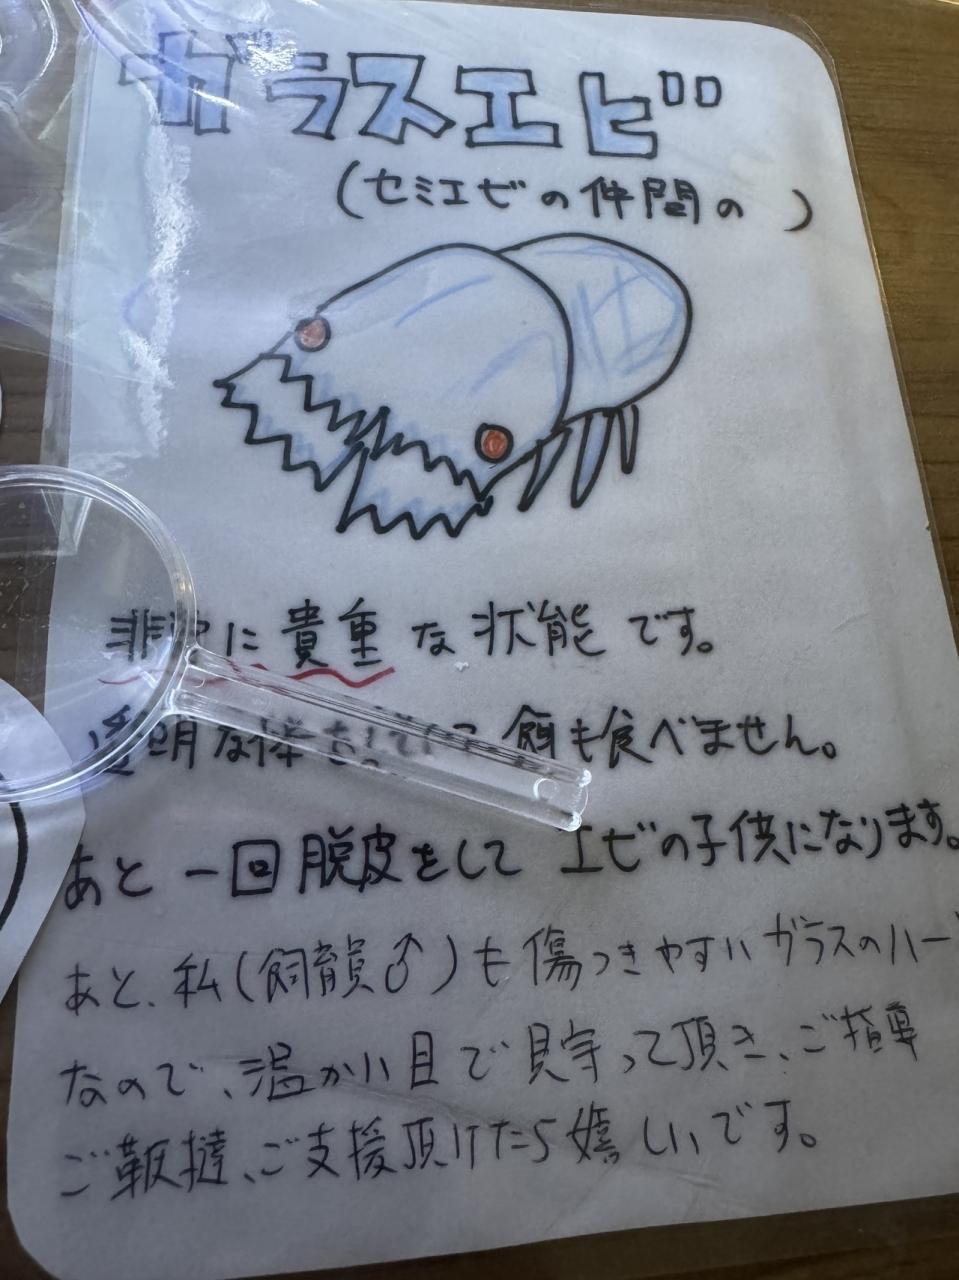 ガラスエビ
(セミエビの仲間の )
非常に貴重な状態です。
透明な体をしていて 餌も食べません。
あと一回脱皮をして エビの子供になります。
あと、私(飼育員♂)も傷つきやすいガラスのハー
なので、温かい目で見守って頂き、ご指導
ご鞭撻、ご支援頂けたら嬉しいです。